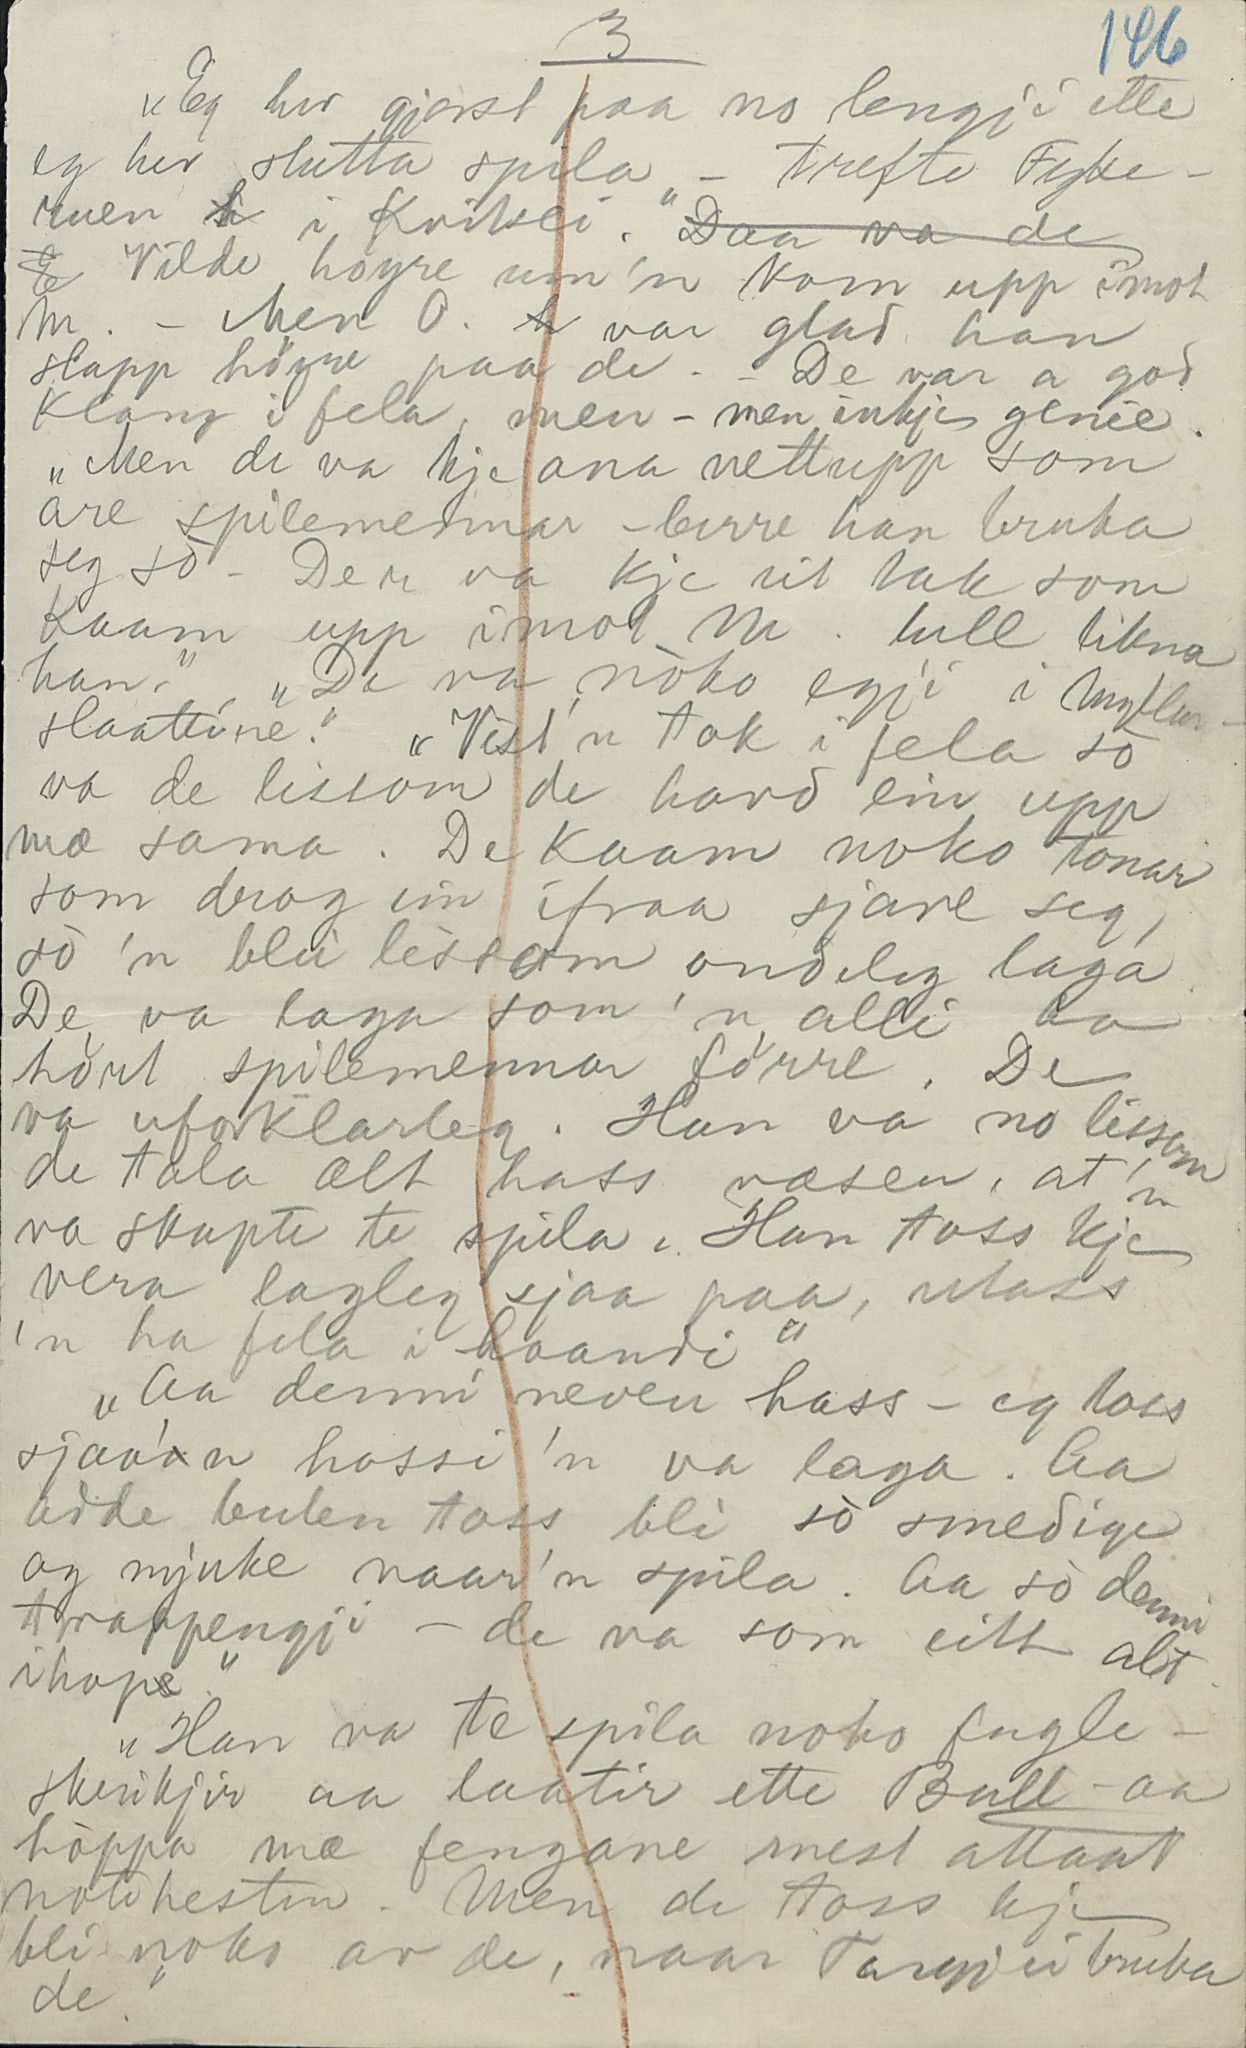 3
146
"Eg hev gjerst paa no lengji ette
eg hev slutta spila" - trefte Fykeruen
i Kvitsei. "Daa va de
Vilde høyre um'n kom upp imot
M. - Men O. var glad han
slapp höyre paa de. - De var a god
klang i fela, men - men inkje genie.
"Men de va kje ana rettupp som
are spilemennar - berre han bruka
seg sò - Der va kje eit tak som
kaam upp imot M. tull likna
han." "De va nòko egji i Myllar-
slaattine." "Vist'n tok i fela sò
va de lissom de havd ein upp
mæ sama. De kaam noko tonar
som drog ein ifraa sjave seg,
sò 'n blei lissom ondeleg laga.
De va laga som 'n alli ha
hòrt spilemennar fòrre. De
va uforklarleg. Han va no lissom
de tala alt hass væsen, at 'n
va skapte te spila. Han toss kje
vera lagleg sjaa paa, utass
'n ha fela i haandi"
"Aa denni neven hass - eg toss
sjaa'n hossi 'n va laga. Aa
adde bulen toss bli sò smedige
og mjuke naar'n spila. Aa sò denni
tvappengji - de va som eitt alt
ihope."
"Han va te spila noko fugle-
skrikjir aa laatir ette Bull - aa
hòppa mæ fengane mest attaat
notehesten. Men de toss kje
bli noko av de, naar Targjei bruka
de."